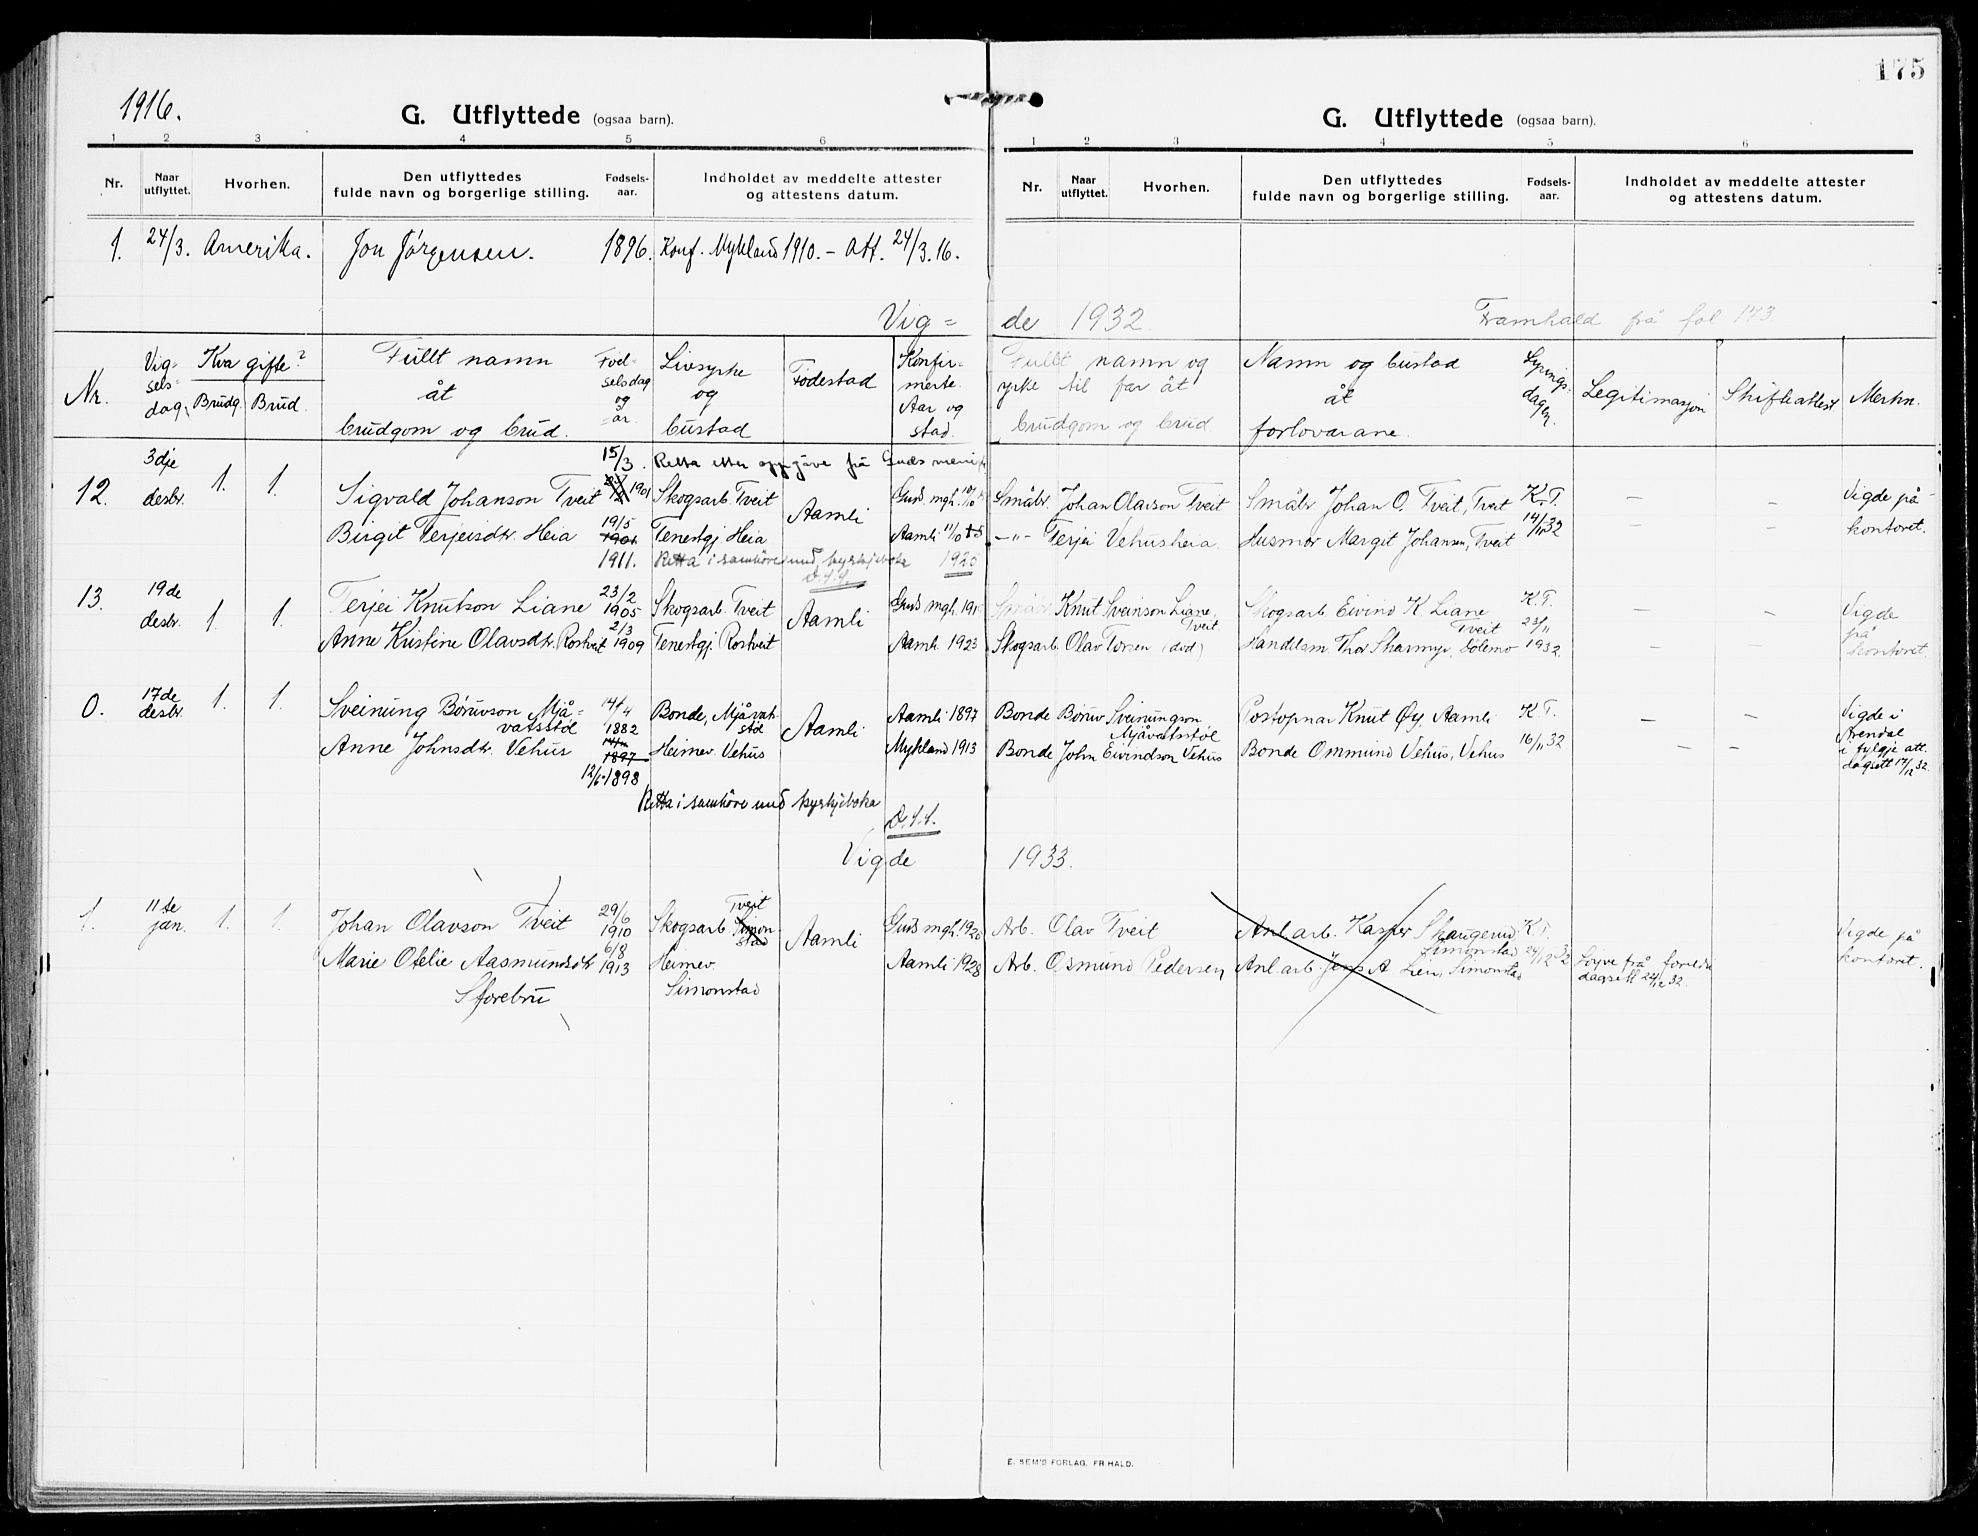 1916.
G. Utflyttede (ogsaa barn).
1 2 3 4 5 6
Nr. Naar utflyttet. Hvorhen. Den utflyttedes fulde navn og borgerlige stilling. Fødsels-aar. Indholdet av meddelte attester og attestens datum.
1. 24/3. Amerika. Jon Jörgensen. 1896. Konf. Mykland 1910. - Att. 24/3.16.
175
G. Utflyttede (ogsaa barn).
1 2 3 4 5 6
Nr. Naar utflyttet. Hvorhen. Den utflyttedes fulde navn og borgerlige stilling. Fødsels-aar. Indholdet av meddelte attester og attestens datum.
Vig= de 1932. Framhald frå fol 173
Nr. Vig=sels=dag. Kva gifte? Brudg. Brud. Fullt namn åt brudgom og brud. Fødselsdag og år. Livsyrke og bustad Fødestad Konfirmerte. Aar og stad. Fullt namn og yrke til far åt brudgom og brud Namn og bustad åt forlovarane. Lysingsdagen. Legitimasjon Skifteattest Merkn.
15/3. Retta etter oppgåve frå
12. 3dje desbr. 1. 1. Sigvald Johanson Tveit 1901 Skogsarb. Tveit Aamli Småbr. Johan Olavson Tveit Småbr Johan O. Tveit, Tveit K.T. 14/11 32 - - Vigde på kontoret.
Birgit Terjeisdtr. Heia 19/5 1901 Tenestgj. Heia Aamli -"- Terjei Vehusheia. Husmor Margit Johansen, Tveit - -
1911. Retta i samhöve med kyrkjeboka 1925
13. 19de desbr. 1. 1. Terjei Knutson Liane 23/2 1905 Skogsarb. Tveit Aamli Småbr. Knut Sveinson Liane, Tveit Skogsarb Eivind K. Liane Tveit K.T. 23/11 1932. - - Vigde på kontoret.
Anne Kristine Olavsdtr. Rostveit 2/3 1909 Tenestgj. Rostveit Aamli 1923 Skogsarb. Olav Torsen (död) - -
0. 17de desbr. 1. 1. Sveinung Böruvson Mjåvatsstöl 14/4 1882 Bonde, Mjåvatstöl Aamli Aamli 1897 Bonde Böruv Sveinungson Mjåvatsstöl Postopnar Knut Öy, Aamli K.T. 16/11 32 - - Vigde i Arendal i fylgje att. dagsett 17/12 32.
Anne Johnsdtr. Vehus 1897 Heimev. Vehus Mykland 1913 Bonde John Eivindson Vehus Bonde Ommund Vehus, Vehus - -
12/6 1898
Retta i samhöve med kyrkjeboka
Vigde 1933.
1. 11te jan. 1. 1. Johan Olavson Tveit 29/6 1910 Skogsarb. Tveit Simonstad Aamli Arb. Olav Tveit Anl.arb. Kasper Skaugerud Simonstad K.T. 24/12 32 Vigde på kontoret.
Marie Otelie Aasmundsdtr 6/8 1913 Heimev. Simonstad Aamli 1928 Arb. Osmund Pedersen, Anl.arb. Jens A Lien, Simonstad Löyve frå foreldr dagsett 24/12 32.
Storebru
E. SEM'S FORLAG. FR HALD.